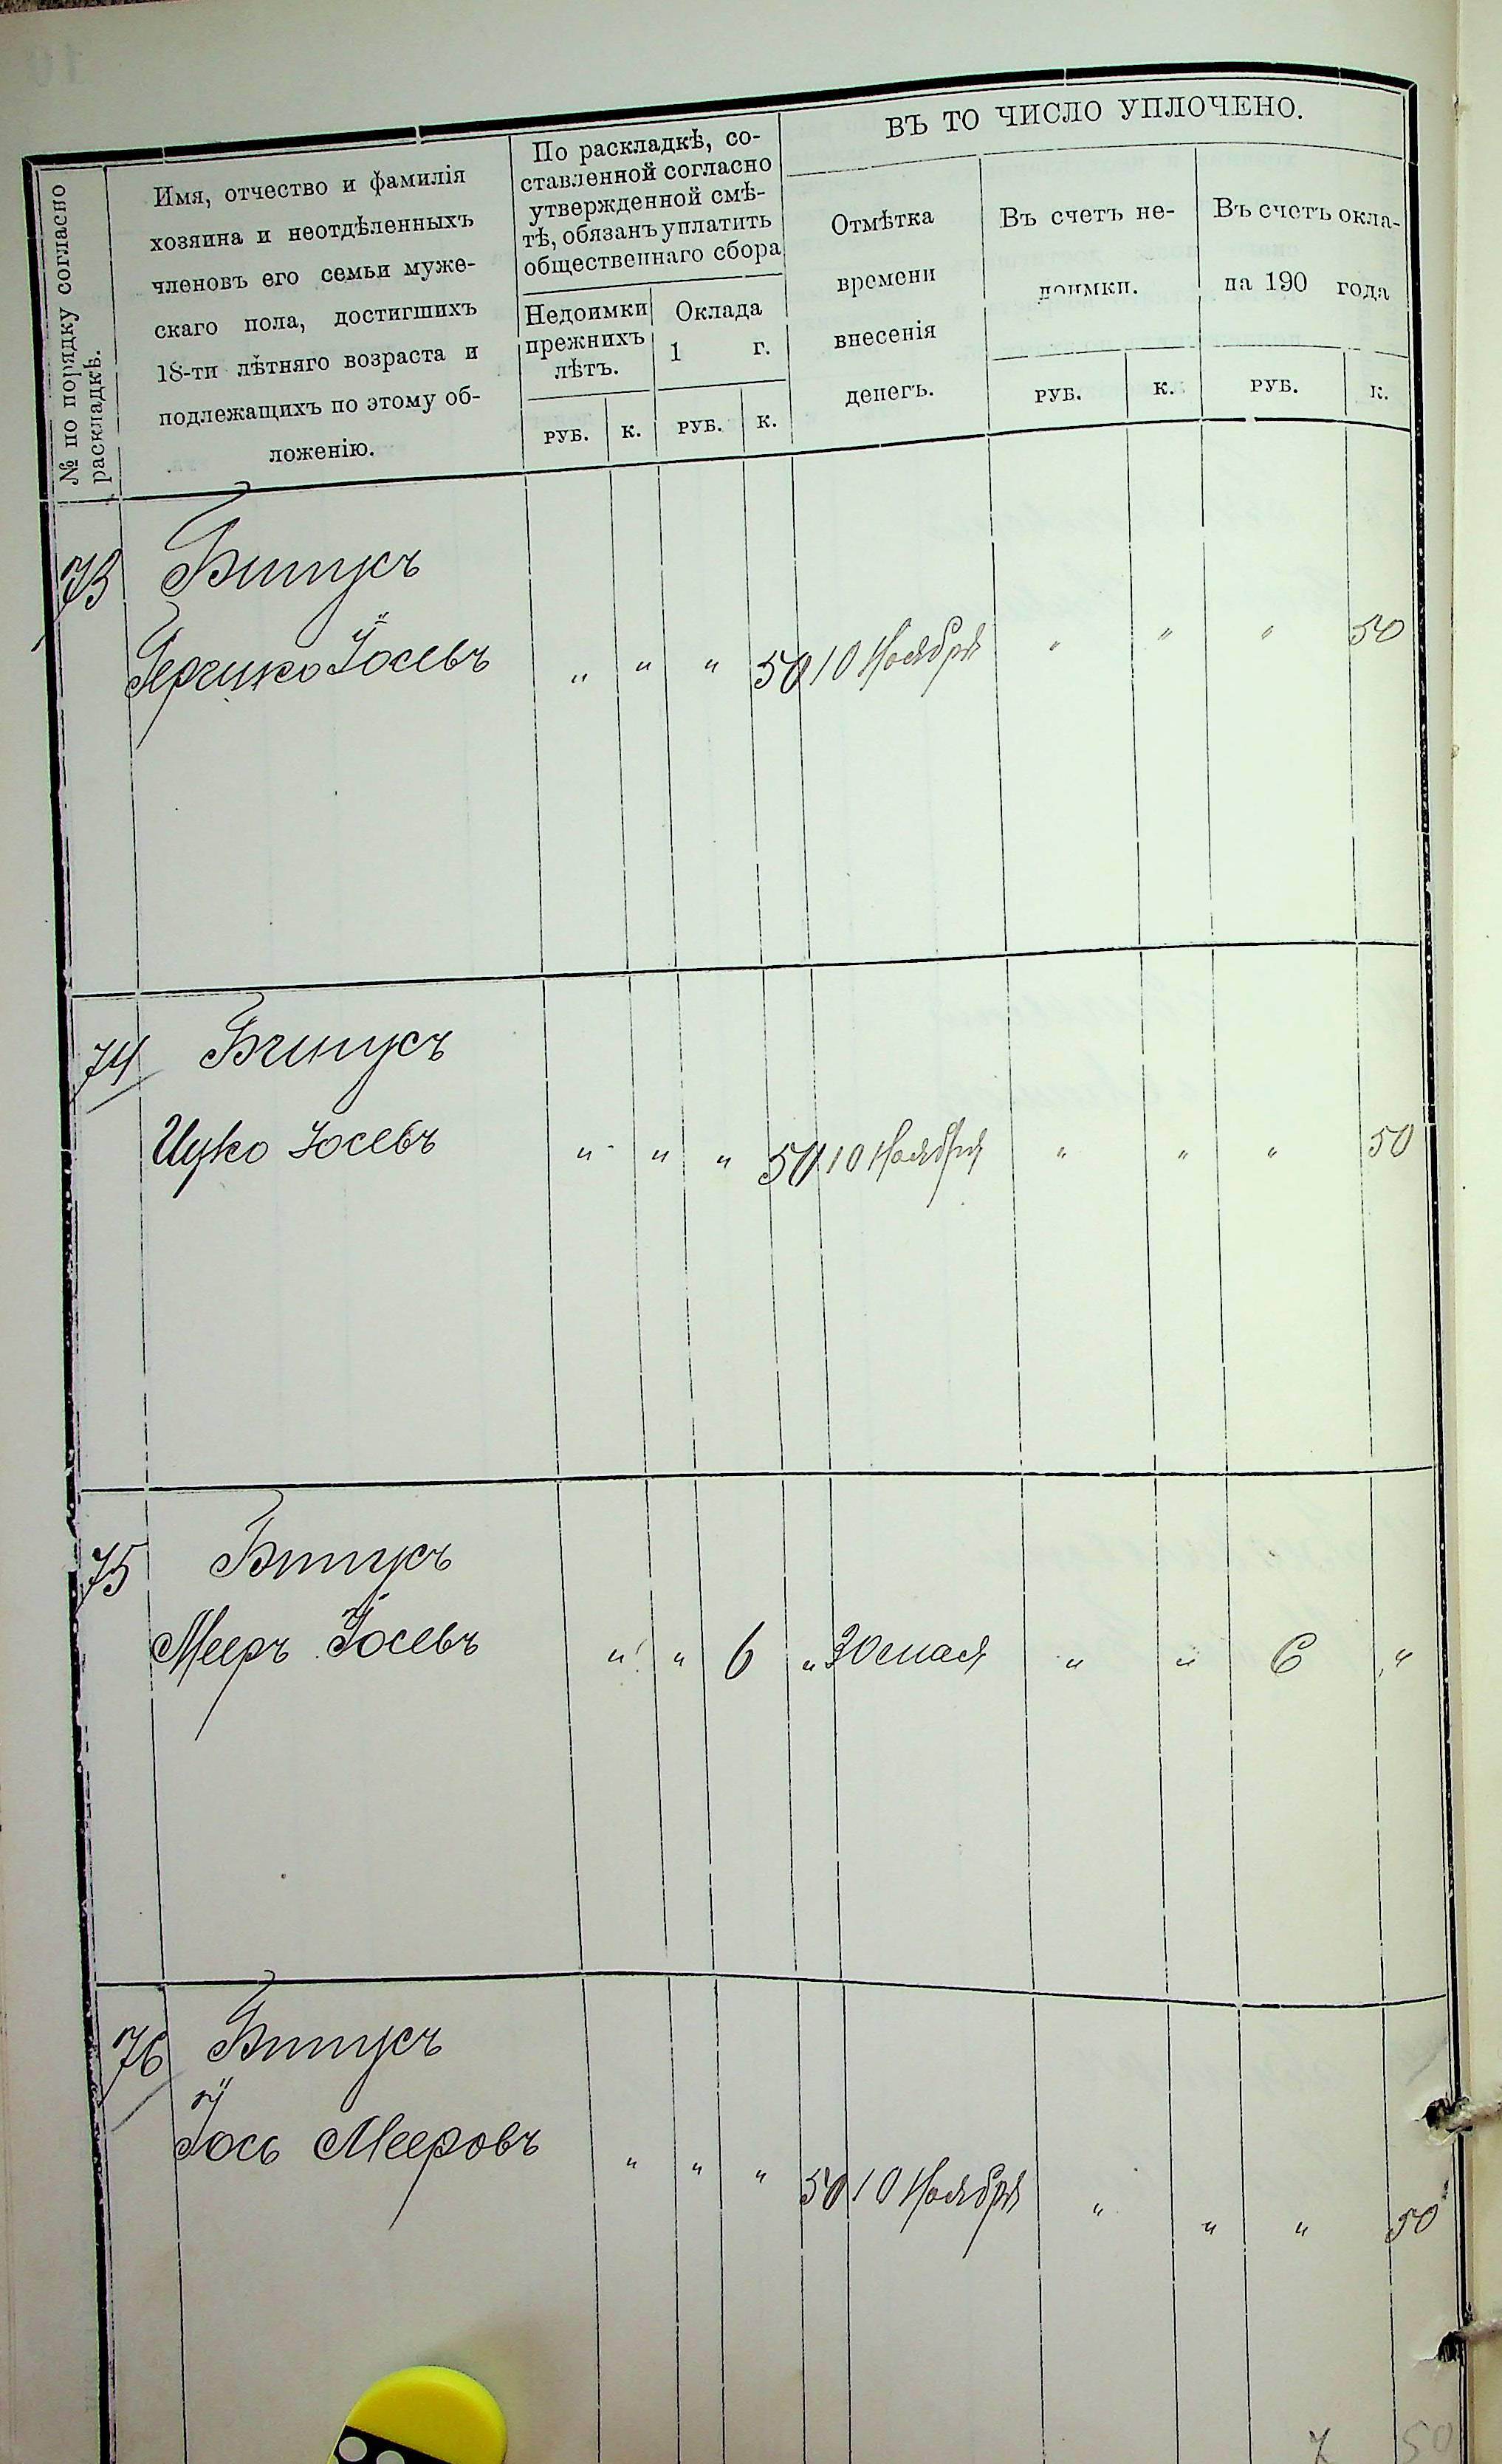 № по порядку согласно
раскладкѣ.
Имя, отчество и фамилія
хозяина и неотдѣленныхъ
членовъ его семьи муже-
скаго пола, достигшихъ
18-ти лѣтняго возраста и
подлежащихъ по этому об-
ложенію.
По раскладкѣ, со-
ставленной согласно
утвержденной смѣ-
тѣ, обязанъ уплатить
общественнаго сбора
Недоимки
прежнихъ
лѣтъ.
Оклада
1 г.
РУБ. К. РУБ. К.
ВЪ ТО ЧИСЛО УПЛОЧЕНО.
Отмѣтка
времени
внесенія
денегъ.
Въ счетъ не-
доимки.
РУБ. К.
Въ счетъ окла-
да 190 года
РУБ. К.
73 Битусъ
Герцико Іосевъ " " " 50 10 Ноября " " " 50
74 Битусъ
Ицко Іосевъ " " " 50 10 Ноября " " " 50
75 Битусъ
Мееръ Іосевъ " " 6 " 30 мая " " 6 "
76 Битусъ
Іось Мееровъ " " " 50 10 Ноября " " " 50
7 50